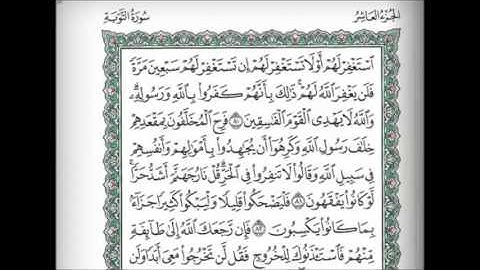 الجزء العاشر
سورة التوبة
ٱسْتَغْفِرْ لَهُمْ أَوْ لَا تَسْتَغْفِرْ لَهُمْ إِن تَسْتَغْفِرْ لَهُمْ سَبْعِينَ مَرَّةً
فَلَن يَغْفِرَ ٱللَّهُ لَهُمْ ۚ ذَٰلِكَ بِأَنَّهُمْ كَفَرُوا۟ بِٱللَّهِ وَرَسُولِهِۦ ۗ
وَٱللَّهُ لَا يَهْدِى ٱلْقَوْمَ ٱلْفَٰسِقِينَ ٨٠ فَرِحَ ٱلْمُخَلَّفُونَ بِمَقْعَدِهِمْ
خِلَٰفَ رَسُولِ ٱللَّهِ وَكَرِهُوٓا۟ أَن يُجَٰهِدُوا۟ بِأَمْوَٰلِهِمْ وَأَنفُسِهِمْ
فِى سَبِيلِ ٱللَّهِ وَقَالُوا۟ لَا تَنفِرُوا۟ فِى ٱلْحَرِّ ۗ قُلْ نَارُ جَهَنَّمَ أَشَدُّ حَرًّا ۚ
لَّوْ كَانُوا۟ يَفْقَهُونَ ٨١ فَلْيَضْحَكُوا۟ قَلِيلًا وَلْيَبْكُوا۟ كَثِيرًا جَزَآءًۢ
بِمَا كَانُوا۟ يَكْسِبُونَ ٨٢ فَإِن رَّجَعَكَ ٱللَّهُ إِلَىٰ طَآئِفَةٍ
مِّنْهُمْ فَٱسْتَـْٔذَنُوكَ لِلْخُرُوجِ فَقُل لَّن تَخْرُجُوا۟ مَعِىَ أَبَدًا وَلَن